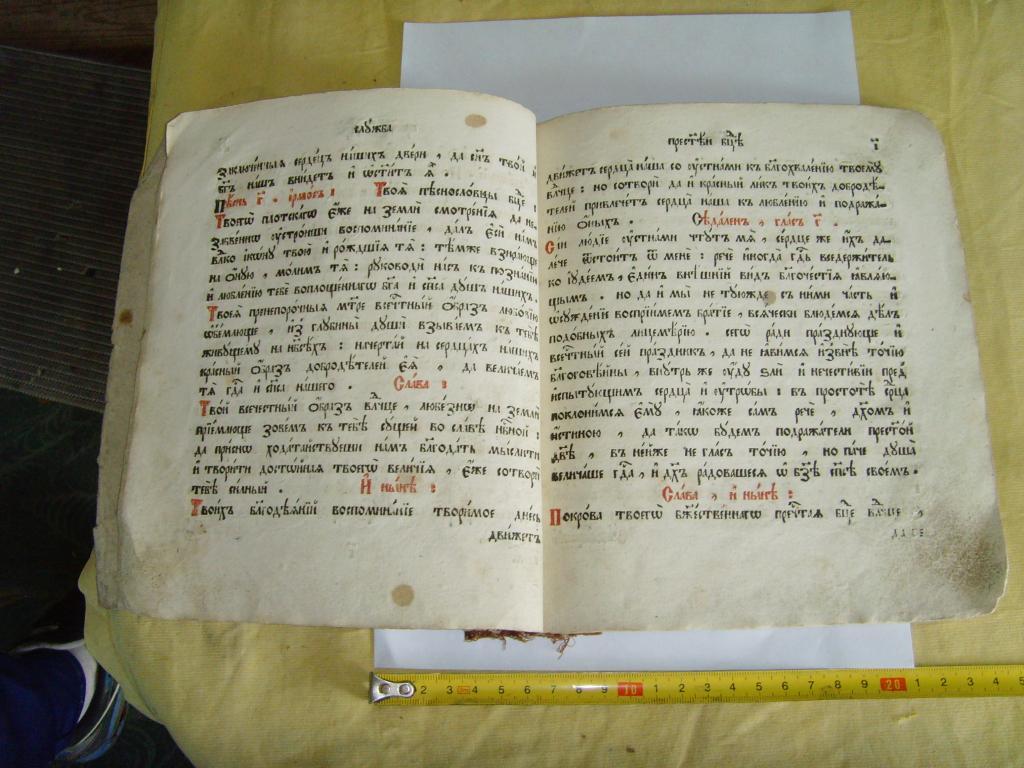 слꙋжба
заключи́ныѧ серде́цъ на́шихъ две́ри , да сн҃ъ тво́й и҆
бг҃ъ на́шъ вни́детъ и҆ ѡ҆ст҃и́тъ ѧ҆ .
Пѣ́снь г҃ . і҆рмо́съ : Твоѧ̀ пѣсносло́вцы бц҃е :
Твоегѡ̀ пло́тскагѡ є҆́же на землѝ смотре́нїѧ да не
забве́нно ᲂу҆стро́иши воспомина́нїе , да́лъ є҆сѝ на́мъ
влⷣко і҆кѡ́нꙋ твою̀ и҆ ро́ждшїѧ тѧ̀ : тѣ́мже взира́юще
на ѻ҆́нꙋю , мо́лимъ тѧ̀ : рꙋководѝ на́съ къ позна́нїю
и҆ любле́нїю тебѐ воплоще́ннагѡ бг҃а и҆ сп҃са дꙋ́шъ на́шихъ .
Твоеѧ̀ пренепоро́чныѧ мт҃ре всечⷭ҇тны́й ѻ҆́бразъ любо́вїю
ѡ҆б̾е́млюще , и҆з̾ глꙋбины̀ дꙋшѝ взыва́емъ къ тебѣ̀
живꙋ́щемꙋ на нб҃сѣ́хъ : начерта́й на сердца́хъ на́шихъ
кра́сный ѻ҆́бразъ добродѣ́телей є҆ѧ̀ , да велича́емъ
тѧ̀ гдⷭ҇а и҆ сп҃са на́шего . Сла́ва :
Тво́й всече́стный ѻ҆́бразъ влⷣчце , любе́знѡ на землѝ
прїе́млюще зове́мъ къ тебѣ̀ сꙋ́щей во сла́вѣ нбⷭ҇ной :
да при́снѡ хода́тайствꙋеши на́мъ благода́ть мы́слити
и҆ твори́ти досто́йнаѧ твоегѡ̀ вели́чїѧ , є҆́же сотворѝ
тебѣ̀ си́лный . И҆ ны́нѣ :
Твои́хъ благодѣѧ́нїй воспомина́нїе твори́мое дне́сь
дви́жетъ
прест҃ѣ́й бц҃ѣ і҃
дви́жетъ сердца̀ на́ша со ᲂу҆стна́ми къ благохвале́нїю твоемꙋ̀
влⷣчце : но сотворѝ да и҆ кра́сный ли́къ твои́хъ доброд́ѣ-
телей привлече́тъ сердца̀ на́ша къ любле́нїю и҆ подража́-
нїю ѻ҆́ныхъ . Сѣда́ленъ , гла́съ г҃ .
Сі́и лю́дїе ᲂу҆стна́ми чтꙋ́тъ мѧ̀ , се́рдце же и҆́хъ да-
ле́че ѿстои́тъ ѿ менє̀ : речѐ и҆ногда̀ гдⷭ҇ь вседержи́тель
ко і҆ꙋде́ємъ , є҆ди́нъ внѣ́шнїй ви́дъ благоче́стїѧ ꙗ҆влѧ́ю-
щымъ . но да и҆ мы̀ не тꙋ́южде съ ни́ми ча́сть и҆
ѡ҆сꙋжде́нїе воспрїи́мемъ бра́тїе , всѧ́чески блюде́мсѧ дѣ́лъ
подо́бныхъ лицемѣ́рїю . сегѡ̀ ра́ди пра́зднꙋюще и҆
всечⷭ҇тны́й се́й пра́здникъ , да не ꙗ҆ви́мсѧ и҆звнѣ̀ то́чїю
благоговѣ́йны , внꙋтрь же сꙋ́дꙋ ѕлі́и и҆ нечести́вїи пред̾
и҆спытꙋ́ющимъ сердца̀ и҆ ᲂу҆тро́бы : въ простотѣ̀ срⷣца
поклони́мсѧ є҆мꙋ̀ , ꙗ҆́коже са́мъ речѐ , дх҃омъ и҆
и҆́стиною , да та́кѡ бꙋ́демъ подража́тели прест҃о́й
дв҃ѣ , въ не́йже не гла́съ то́чїю , но па́че дꙋша̀
велича́ше гдⷭ҇а , и҆ дꙋ́хъ ра́довашесѧ ѡ҆ бз҃ѣ сп҃сѣ свое́мъ .
Сла́ва , и҆ ны́нѣ :
Покро́ва твоегѡ̀ бж҃е́ственнагѡ преч҃таѧ бц҃е влⷣчце ,
10 20
2 3 4 5 6 7 8 9 1 2 3 4 5 6 7 8 9 1 2 3 4 5